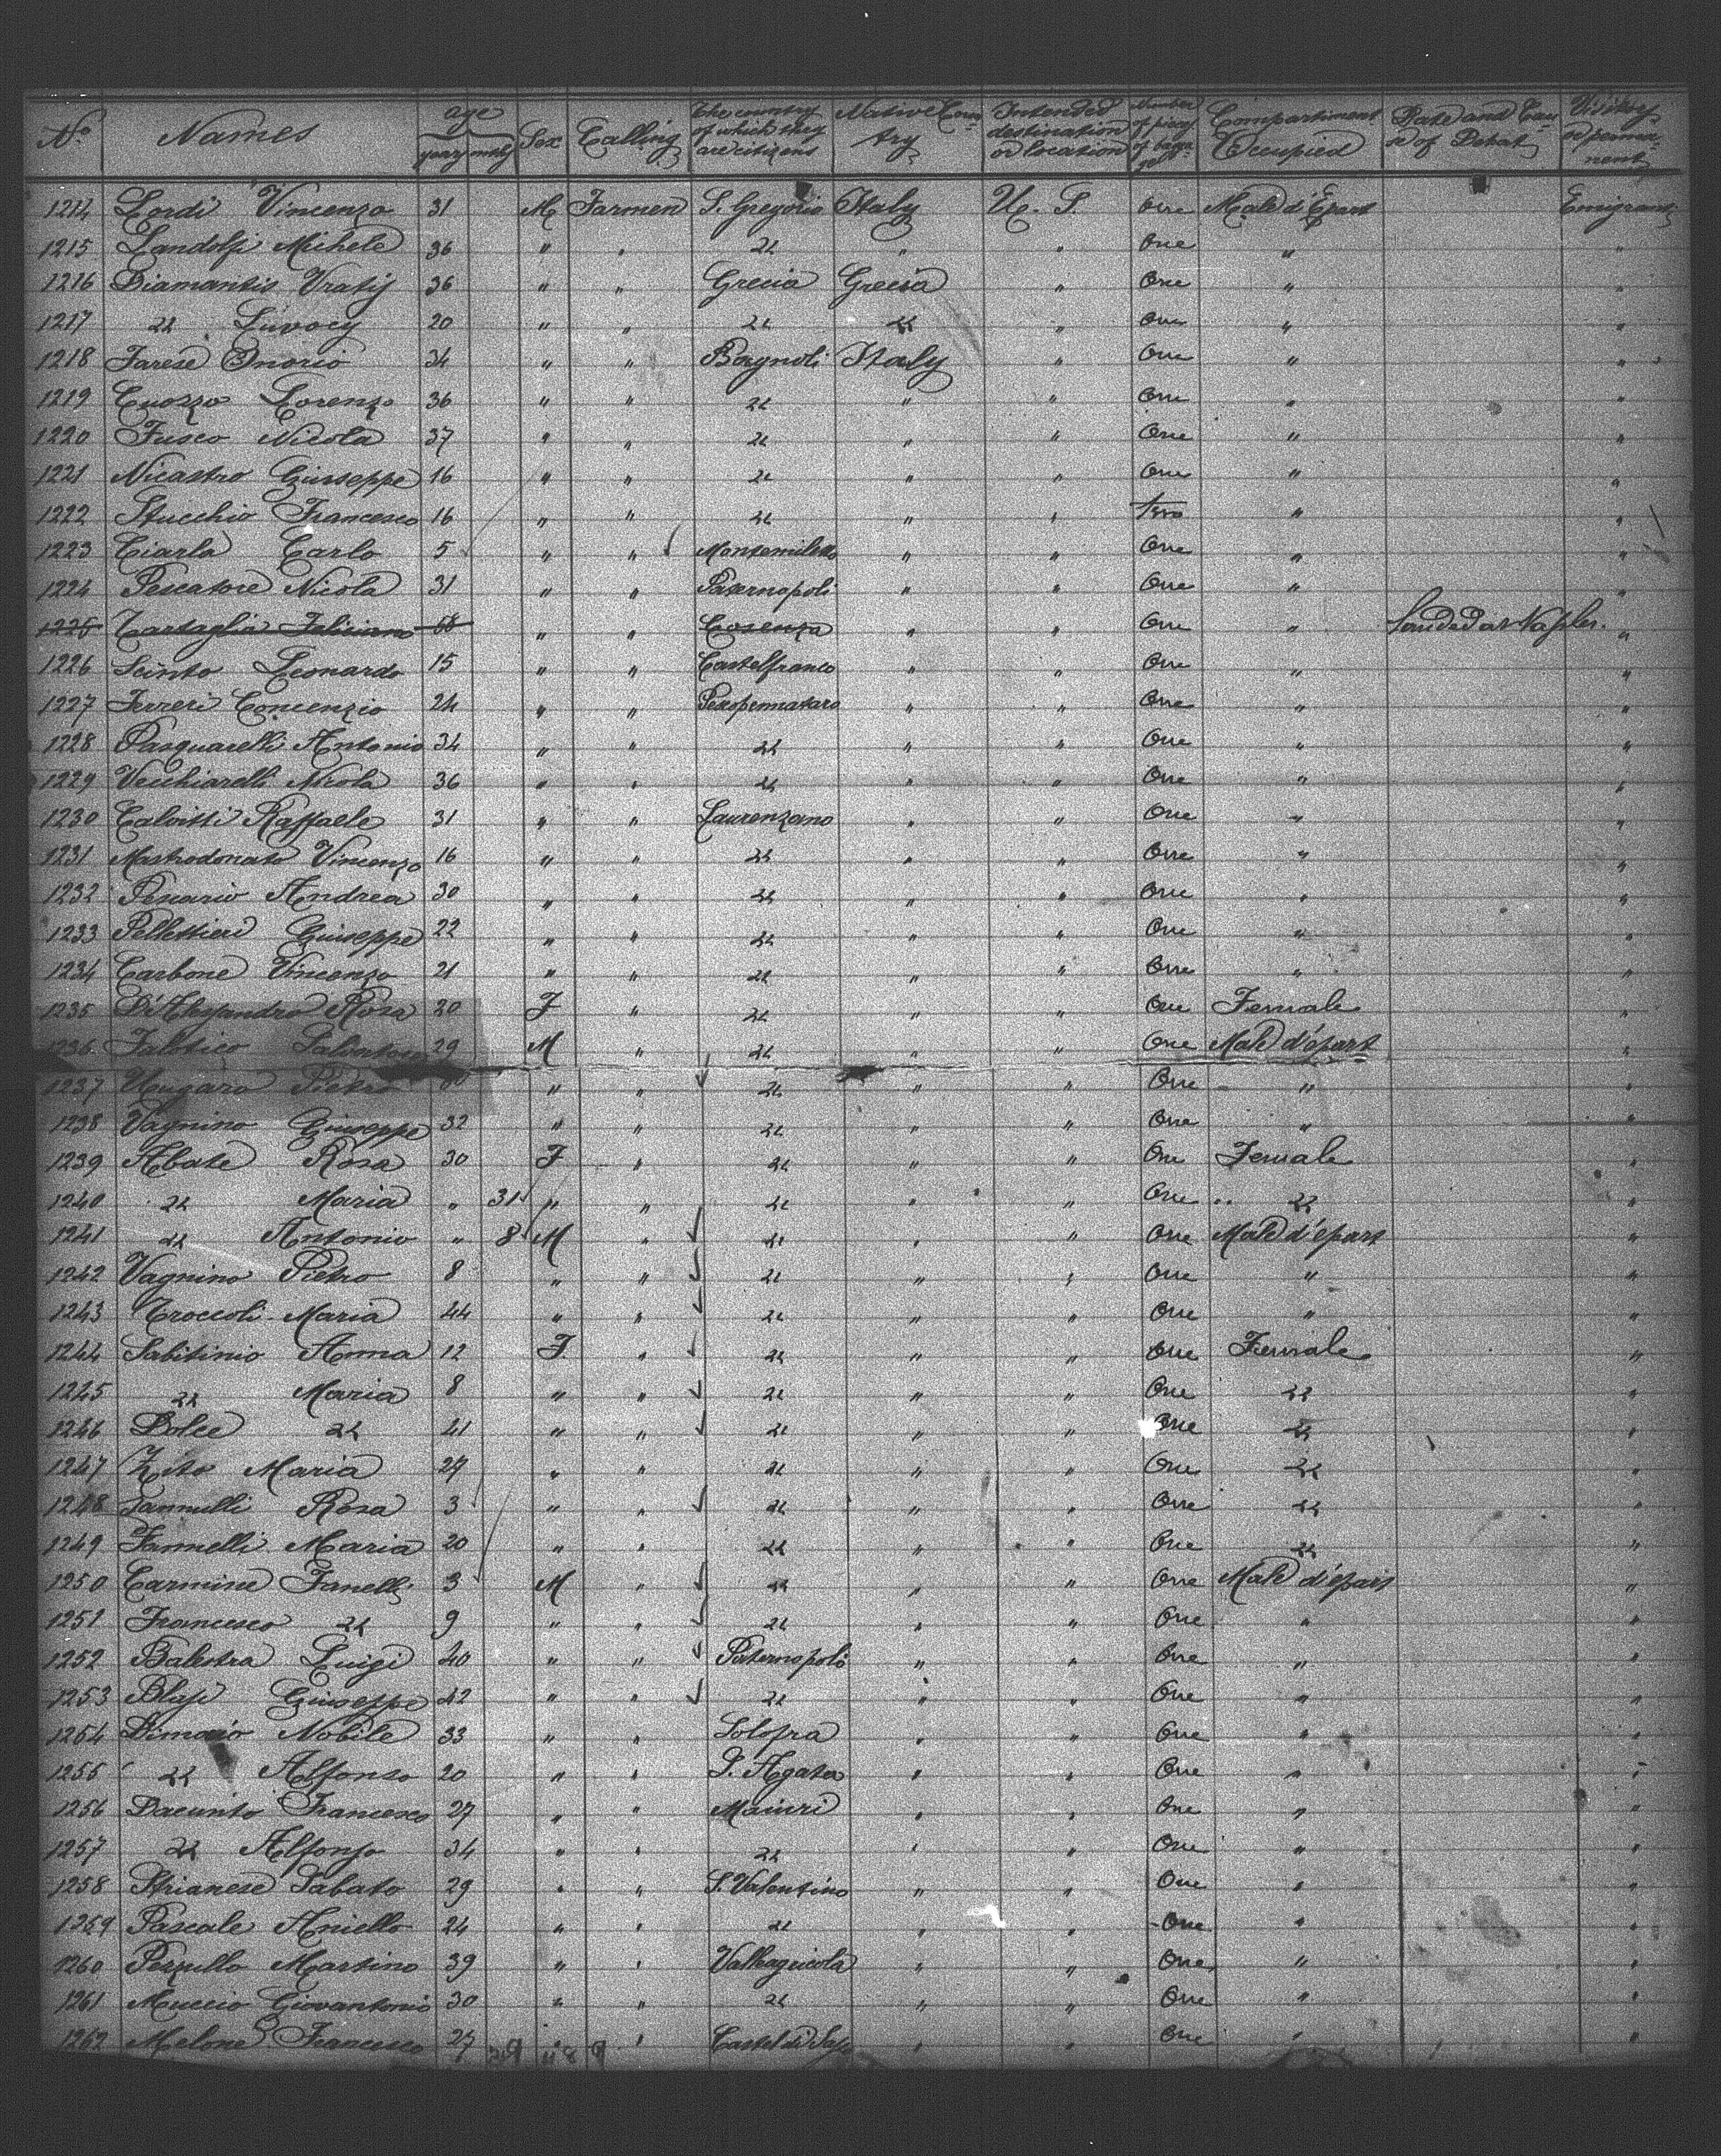 No. Names age years months Sex Calling The country of which they are citizens Native Country Intended destination or location Number of pieces of baggage Compartiment Occupied Date and Cause of
1214 Lordi Vincenzo 31 M Farmer S. Gregorio Italy U. S. One Male d'Epart Emigrant
1215 Landolfi Michele 36 " " " " " One " "
1216 Diamantis 36 " " Grecia Grecia " One " "
1217 " 20 " " " " " One " "
1218 Farese Onorio 34 " " Bagnoli Italy " One " "
1219 Cuozzo Lorenzo 36 " " " " " One " "
1220 Fusco Nicola 37 " " " " " One " "
1221 Nicastro Giuseppe 16 " " " " " One " "
1222 Stucchio Francesco 16 " " " " " Two " "
1223 Ciarla Carlo 5 " " Montemiletto " " One " "
1224 Pescatore Nicola 31 " " Paternopoli " " One " "
1225 Tartaglia Feliciano 68 " " Cosenza " " One " Landed at Naples. "
1226 Scinto Leonardo 15 " " Castelfranco " " One " "
1227 Ferreri Concenzio 24 " " Pescopennataro " " One " "
1228 Pasquarelli Antonio 34 " " " " " One " "
1229 Vecchiarelli Nicola 36 " " " " " One " "
1230 Calvitti Raffaele 31 " " Laurenzano " " One " "
1231 Mastrodonato Vincenzo 16 " " " " " One " "
1232 Andrea 30 " " " " " One " "
1233 Pellettieri Giuseppe 22 " " " " " One " "
1234 Carbone Vincenzo 21 " " " " " One " "
1235 Rosa 20 F " " " " One Female "
1236 Falotico Salvatore 29 M " " " " One Male d'épart "
1237 Ungaro Pietro " " " " " One " "
1238 Vagnino Giuseppe 32 " " " " " One " "
1239 Abate Rosa 30 F " " " " One Female "
1240 " Maria " 31 " " " " " One " "
1241 " Antonio " 8 M " " " " One Male d'épart "
1242 Vagnino Pietro 8 " " " " " One " "
1243 Troccoli Maria 44 " " " " " One " "
1244 Sabitinio Anna 12 F. " " " " One Female "
1245 " Maria 8 " " " " " One " "
1246 Dolce " 41 " " " " " One " "
1247 Zito Maria 27 " " " " " One " "
1248 Rosa 3 " " " " " One " "
1249 Maria 20 " " " " " One " "
1250 Carmine Fanelli 3 M " " " " One Male d'épart "
1251 Francesco " 9 " " " " " One " "
1252 Balestra Luigi 40 " " Paternopoli " " One " "
1253 Blasi Giuseppe 42 " " " " " One " "
1254 Nobile 33 " " Solofra " " One " "
1255 " Alfonso 20 " " S. Agata " " One " "
1256 Dacunto Francesco 27 " " Maiuri " " One " "
1257 " Alfonso 34 " " " " " One " "
1258 Strianese Sabato 29 " " S. Valentino " " One " "
1259 Pascale Aniello 24 " " " " " One " "
1260 Perrullo Martino 39 " " Valleagricola " " One " "
1261 Muccio Giovantonio 30 " " " " " One " "
1262 Melone Francesco 27 " " Castel di Sasso " " One " "